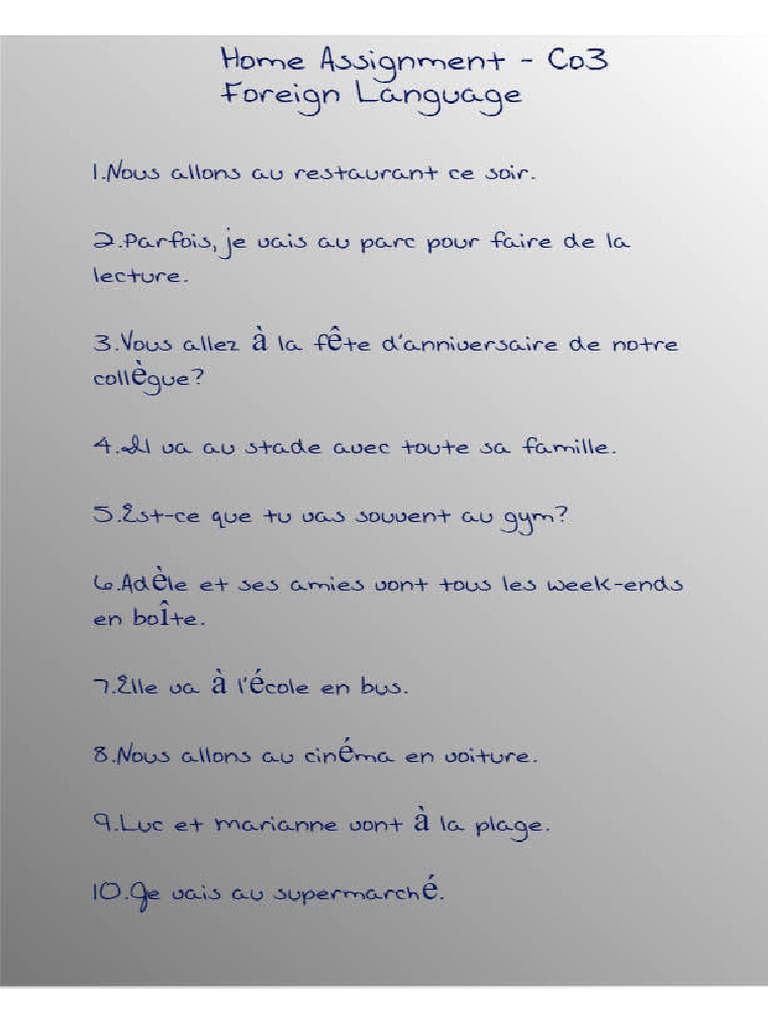 Home Assignment - Co3
Foreign Language
1.Nous allons au restaurant ce soir.
2.Parfois, je vais au parc pour faire de la
lecture.
3.Vous allez à la fête d'anniversaire de notre
collègue?
4.Il va au stade avec toute sa famille.
5.Est-ce que tu vas souvent au gym?
6.Adèle et ses amies vont tous les week-ends
en boîte.
7.Elle va à l'école en bus.
8.Nous allons au cinéma en voiture.
9.Luc et marianne vont à la plage.
10.Je vais au supermarché.